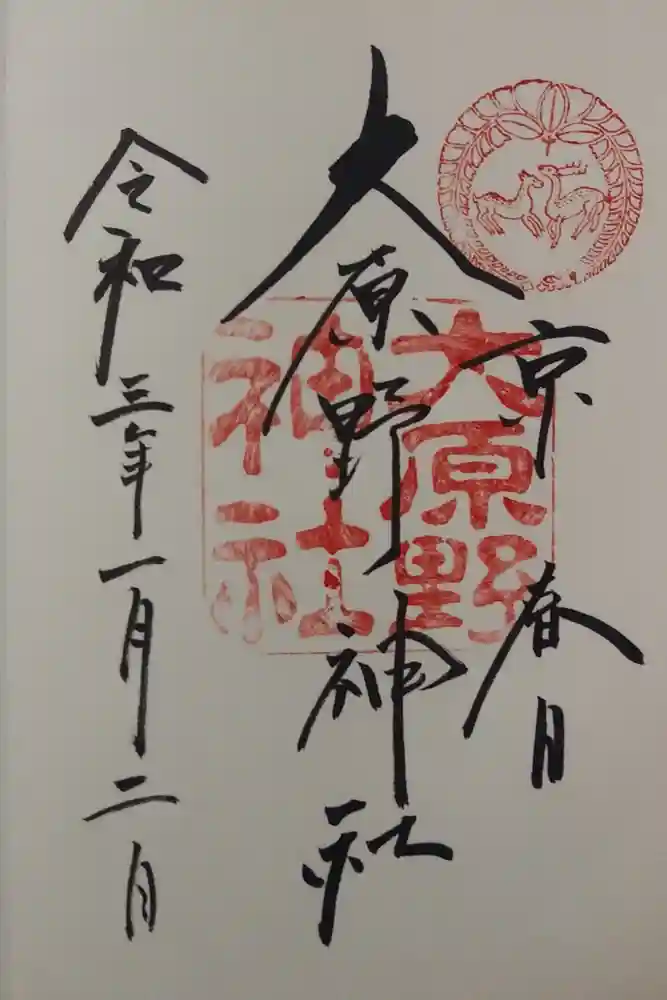 京春日
大原野神社
令和三年一月二日
大原野
神社